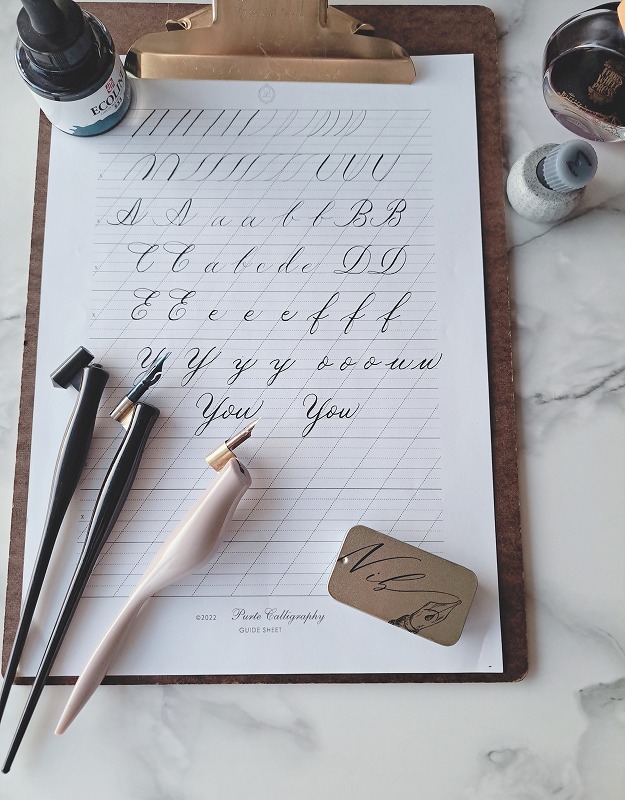 ECOLI
A A a a b b B B
C C a b c d e D D
E E e e e f f f
Y Y y y o o o u u
You You
Nib
©2022 Purte Calligraphy
GUIDE SHEET